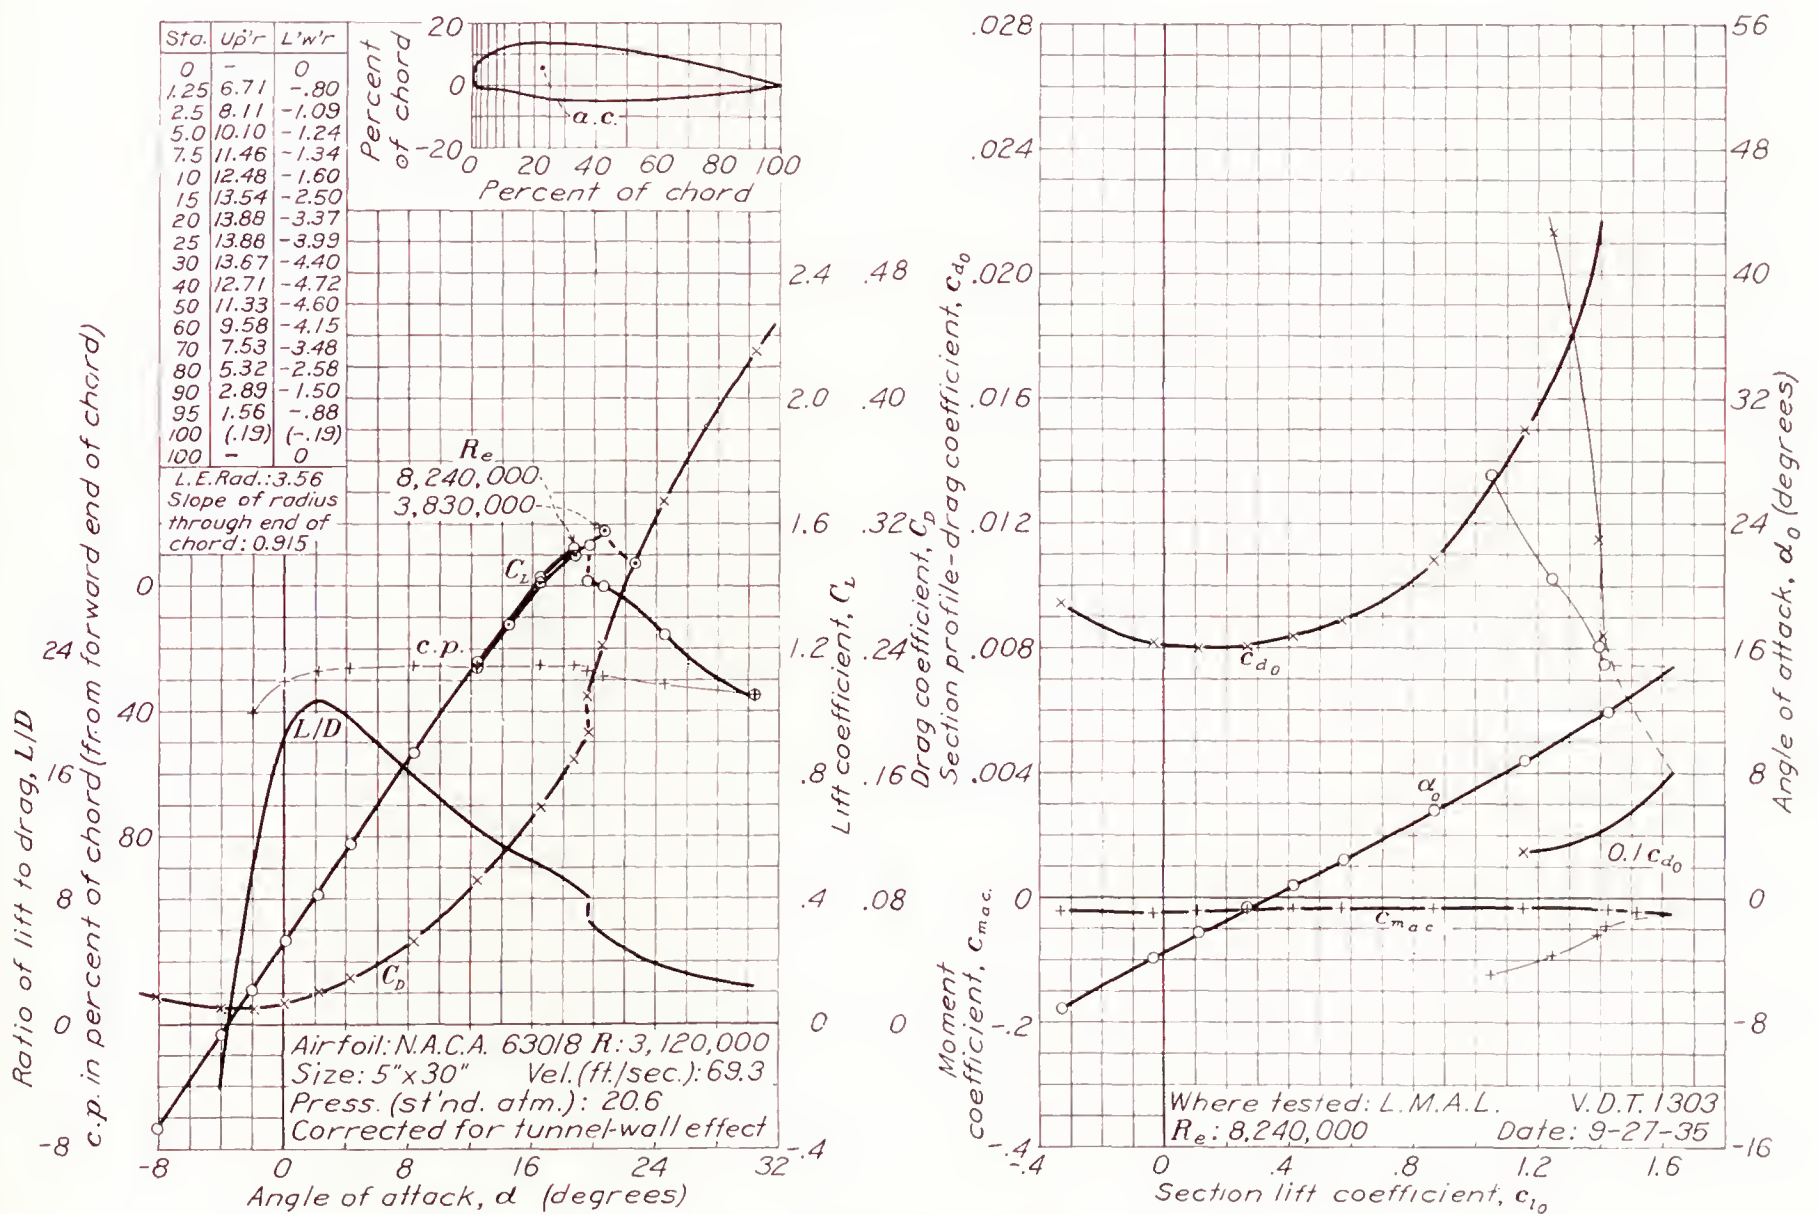 Sta. Up'r L'w'r
0 - 0
1.25 6.71 -.80
2.5 8.11 -1.09
5.0 10.10 -1.24
7.5 11.46 -1.34
10 12.48 -1.60
15 13.54 -2.50
20 13.88 -3.37
25 13.88 -3.99
30 13.67 -4.40
40 12.71 -4.72
50 11.33 -4.60
60 9.58 -4.15
70 7.53 -3.48
80 5.32 -2.58
90 2.89 -1.50
95 1.56 -.88
100 (.19) (-.19)
100 - 0
L.E.Rad.:3.56
Slope of radius
through end of
chord: 0.915
Percent
of chord
20
0
-20
a.c.
0 20 40 60 80 100
Percent of chord
Re
8,240,000
3,830,000
CL
c.p.
L/D
CD
Ratio of lift to drag, L/D
c.p. in percent of chord (from forward end of chord)
0
24
40
16
80
8
0
-8
2.4 .48
2.0 .40
1.6 .32
1.2 .24
.8 .16
.4 .08
0 0
-.4
Lift coefficient, CL
Drag coefficient, CD
Airfoil: N.A.C.A. 63018 R: 3,120,000
Size: 5"x30" Vel.(ft./sec.): 69.3
Press. (st'nd. atm.): 20.6
Corrected for tunnel-wall effect
-8 0 8 16 24 32
Angle of attack, α (degrees)
Section profile-drag coefficient, cd0
.028
.024
.020
.016
.012
.008
.004
0
-.2
-.4
Moment
coefficient, cma.c.
cd0
α0
0.1 cd0
cma.c.
56
48
40
32
24
16
8
0
-8
-16
Angle of attack, α0 (degrees)
Where tested: L.M.A.L. V.D.T. 1303
Re: 8,240,000 Date: 9-27-35
-.4 0 .4 .8 1.2 1.6
Section lift coefficient, cl0